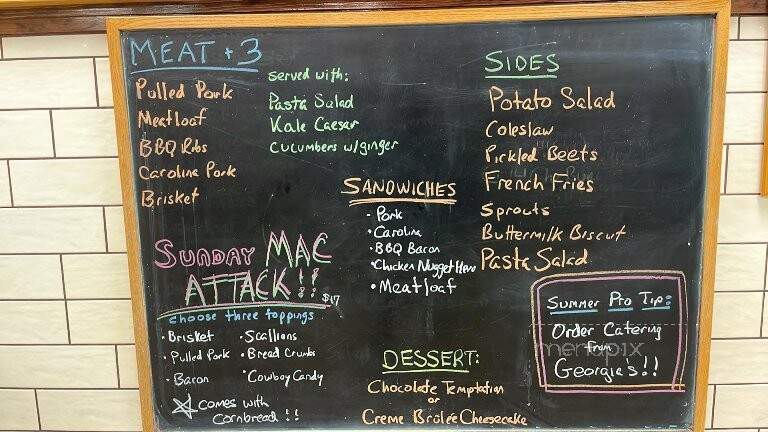 MEAT + 3
Pulled Pork
Meatloaf
BBQ Ribs
Carolina Pork
Brisket
served with:
Pasta Salad
Kale Caesar
cucumbers w/ginger
SIDES
Potato Salad
Coleslaw
Pickled Beets
French Fries
Sprouts
Buttermilk Biscuit
Pasta Salad
SANDWICHES
• Pork
• Carolina
• BBQ Bacon
• Chicken Nugget Hero
• Meatloaf
SUNDAY MAC
ATTACK!!
$17
choose three toppings
• Brisket
• Pulled Pork
• Bacon
• Scallions
• Bread Crumbs
• Cowboy Candy
☆ comes with
cornbread !!
DESSERT:
Chocolate Temptation
or
Creme Brûlée Cheesecake
Summer Pro Tip:
Order Catering
from
Georgia's!!
menupix